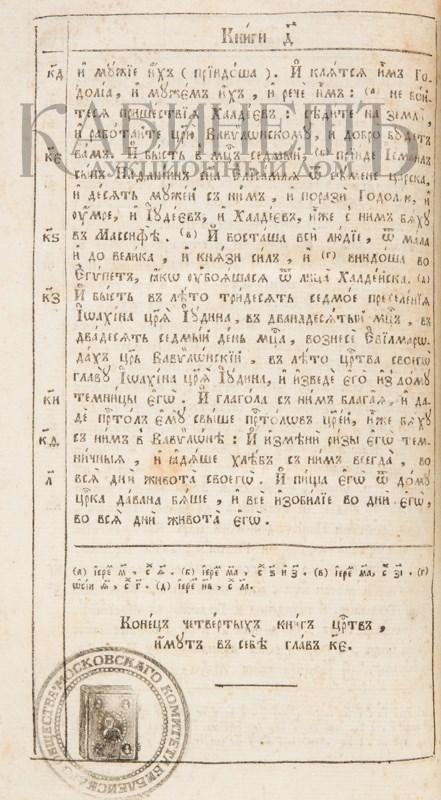 Книги д҃
к҃д и҆ мꙋ́жїе и҆́хъ ( прїидо́ша ). И҆ клѧ́тсѧ и҆̀мъ Го-
до́лїа , и҆ мꙋже́мъ и҆́хъ , и҆ речѐ и҆̀мъ : (а) не бо́й-
тесѧ прише́ствїѧ Халде́євъ : сѣди́те на землѝ ,
и҆ рабо́тайте цр҃ю̀ Вавѷлѡ́нскомꙋ , и҆ добро̀ бꙋ́детъ
к҃є ва́мъ . И҆ бы́сть въ мц҃ъ седмы́й , (б) прїи́де І҆сма́илъ
сы́нъ Наѳа́нїинъ ѿ сѣ́мене ца́рска ,
и҆ де́сѧть мꙋже́й съ ни́мъ , и҆ поразѝ Годо́лїю , и҆
ᲂу҆́мре , и҆ І҆ꙋде́євъ , и҆ Халде́євъ , и҆̀же с ни́мъ бѧ́хꙋ
к҃ѕ въ Масси́фѣ . (в) И҆ воста́ша всѝ лю́дїе , ѿ ма́ла
и҆ до вели́ка , и҆ кнѧ́зи си́лъ , и҆ (г) внидо́ша во
Є҆гѵ́петъ , ꙗ҆́кѡ ᲂу҆боѧ́шасѧ ѿ лица̀ Халде́йска . (д)
к҃з И҆ бы́сть въ лѣ́то три́десѧть седмо́е преселе́нїѧ
І҆ѡахі́на цр҃ѧ̀ І҆ꙋ́дина , въ дванадесѧ́тый мц҃ъ , въ
два́десѧть седмы́й де́нь мц҃а , вознесѐ Є҆вїлмарѡ-
да́хъ цр҃ь Вавѷлѡ́нскїй , въ лѣ́то црⷭ҇тва своегѡ̀
главꙋ̀ І҆ѡахі́на цр҃ѧ̀ І҆ꙋ́дина , и҆ и҆зведѐ є҆го̀ и҆з до́мꙋ
к҃и темни́цы є҆гѡ̀ . И҆ глаго́ла с ни́мъ блага̑ѧ , и҆ да-
дѐ прⷭ҇то́лъ є҆мꙋ̀ свы́ше прⷭ҇то́лѡвъ цр҃е́й , и҆̀же бѧ́хꙋ
к҃д с ни́мъ в Вавѷлѡ́нѣ : И҆ и҆змѣнѝ ри̑зы є҆гѡ̀ тем-
ни̑чныѧ , и҆ ꙗ҆дѧ́ше хлѣ́бъ с ни́мъ всегда̀ , во
л҃ всѧ̑ дни̑ живота̀ своегѡ̀ . И҆ пи́ща є҆гѡ̀ ѿ до́мꙋ
цр҃ка дава́на бѧ́ше , и҆ всѐ и҆з̾оби́лїе во днѝ є҆гѡ̀ ,
во всѧ̑ дни̑ живота̀ є҆гѡ̀ .
(а) і҆ере́ м҃ , с҃ ѳ҃ . (б) і҆ере́ ма҃ , с҃ в҃ и҆ з҃ . (в) і҆ере́ ма҃ , с҃ з҃і . (г)
ѡ҆сі́и ѳ҃ , с҃ г҃ . (д) і҆ере́ нв҃ , с҃ ла҃ .
Коне́цъ четве́ртыхъ кни́гъ црⷭ҇твъ ,
и҆́мꙋтъ в себѣ̀ гла́въ к҃є .
КАБИНЕТЪ
АУКЦИОННЫЙ ДОМ
МОСКОВСКАГО КОМИТЕТА БИБЛЕЙСКАГО ОБЩЕСТВА